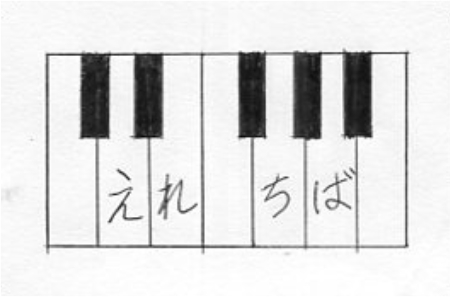 えれ ちば